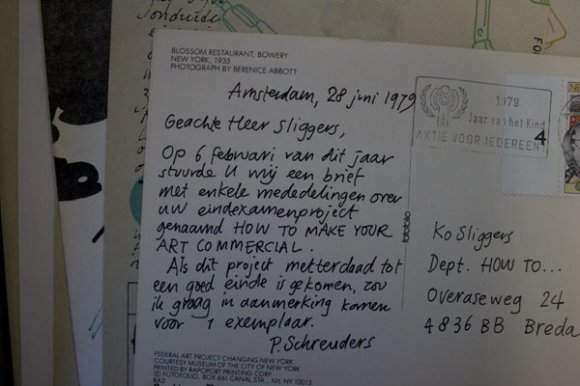 BLOSSOM RESTAURANT, BOWERY
NEW YORK, 1935
PHOTOGRAPH BY BERENICE ABBOTT
Amsterdam, 28 juni 1979
Geachte Heer Sliggers,
Op 6 februari van dit jaar
stuurde U mij een brief
met enkele mededelingen over
uw eindexamenproject
genaamd HOW TO MAKE YOUR
ART COMMERCIAL.
Als dit project metterdaad tot
een goed einde is gekomen, zou
ik graag in aanmerking komen
voor 1 exemplaar.
P. Schreuders
FEDERAL ART PROJECT CHANGING NEW YORK
COURTESY MUSEUM OF THE CITY OF NEW YORK
PRINTED BY RAPOPORT PRINTING CORP
© FOTOFOLIO, BOX 661 CANAL STA., NY, NY 10013
BA2
fotofolio
1979
Jaar van het Kind
AKTIE VOOR IEDEREEN
4
Ko Sliggers
Dept. HOW TO...
Overaseweg 24
4836 BB Breda